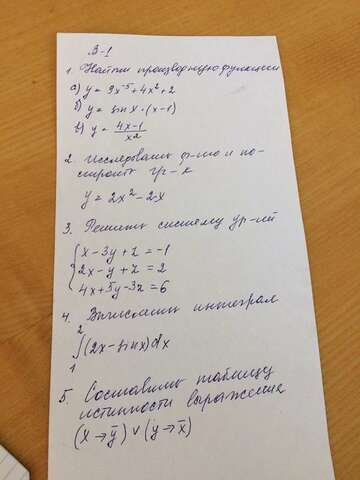 В-1
1. Найти производную функции
а) y = 9x⁻⁵ + 4x² + 2
б) y = sin x · (x-1)
в) y = (4x-1)/x²
2. Исследовать ф-ию и по-
строить гр-к
y = 2x² - 2x
3. Решить систему ур-ий
x - 3y + z = -1
2x - y + z = 2
4x + 5y - 3z = 6
4. Вычислить интеграл
∫₁²(2x - sin x)dx
5. Составить таблицу
истинности выражения
(x → ȳ) ∨ (y → x̄)